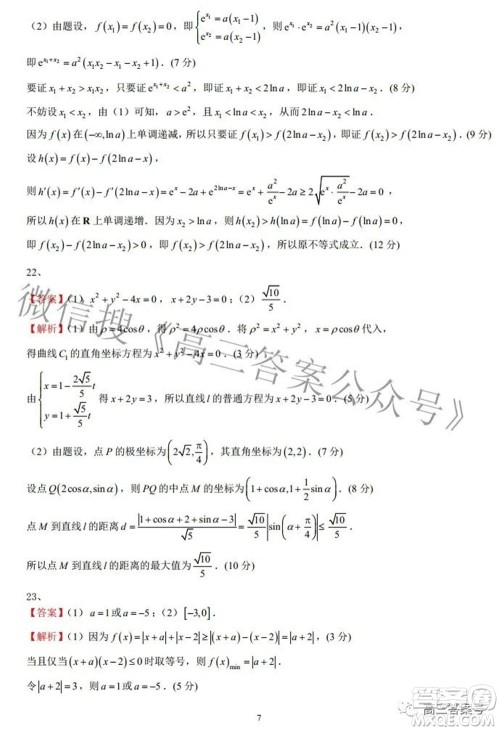 （2）由题设，f(x₁)=f(x₂)=0，即{e^{x₁}=a(x₁-1) e^{x₂}=a(x₂-1)，则e^{x₁}·e^{x₂}=a(x₁-1)·a(x₂-1)，
即e^{x₁+x₂}=a²(x₁x₂-x₁-x₂+1)．(7 分)
要证x₁+x₂>x₁x₂，只要证e^{x₁+x₂}<a²，即证x₁+x₂<2ln a，即证x₁<2ln a-x₂．(8 分)
不妨设x₁<x₂，由（1）可知，a>e²，且x₁<ln a<x₂，从而2ln a-x₂<ln a．
因为f(x)在(-∞,ln a)上单调递减，所以只要证f(x₁)>f(2ln a-x₂)，即证f(x₂)>f(2ln a-x₂)．(9 分)
设h(x)=f(x)-f(2ln a-x)，
则h′(x)=f′(x)-f′(2ln a-x)=e^x-2a+e^{2ln a-x}=e^x+a²/e^x-2a≥2√(e^x·a²/e^x)-2a=0，
所以h(x)在R上单调递增．因为x₂>ln a，则h(x₂)>h(ln a)=f(ln a)-f(ln a)=0，
即f(x₂)-f(2ln a-x₂)>0，即f(x₂)>f(2ln a-x₂)，所以原不等式成立．(12 分)
22、
【答案】（1）x²+y²-4x=0，x+2y-3=0；（2）√10/5．
【解析】（1）由ρ=4cosθ，得ρ²=4ρcosθ．将ρ²=x²+y²，ρcosθ=x代入，
得曲线C₁的直角坐标方程为x²+y²-4x=0．(3 分)
由{x=1-(2√5/5)t y=1+(√5/5)t 得x+2y=3，所以直线l的普通方程为x+2y-3=0．(5 分)
（2）由题设，点P的极坐标为(2√2,π/4)，其直角坐标为(2,2)．(7 分)
设点Q(2cosα,sinα)，则PQ的中点M的坐标为(1+cosα,1+½sinα)．(8 分)
点M到直线l的距离d=|1+cosα+2+sinα-3|/√5=√10/5|sin(α+π/4)|≤√10/5．
所以点M到直线l的距离的最大值为√10/5．(10 分)
23、
【答案】（1）a=1或a=-5；（2）[-3,0]．
【解析】（1）因为f(x)=|x+a|+|x-2|≥|(x+a)-(x-2)|=|a+2|，(3 分)
当且仅当(x+a)(x-2)≤0时取等号，则f(x)_min=|a+2|．
令|a+2|=3，则a=1或a=-5．(5 分)
7
微信搜《高三答案公众号》
高三答案号
答案圈